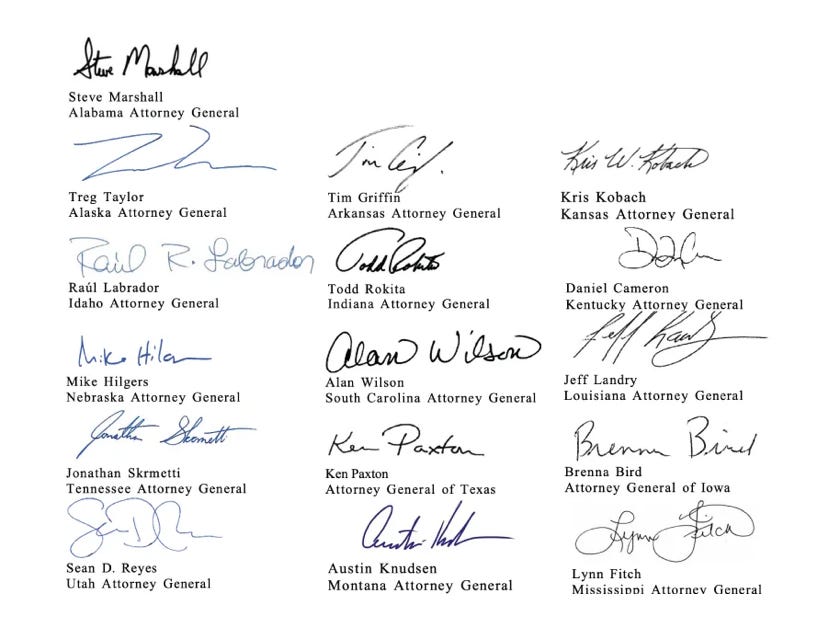 Steve Marshall
Steve Marshall
Alabama Attorney General
Tim
Kris W. Kobach
Treg Taylor
Tim Griffin
Kris Kobach
Alaska Attorney General
Arkansas Attorney General
Kansas Attorney General
Raúl R. Labrador
Todd Rokita
Raúl Labrador
Todd Rokita
Daniel Cameron
Idaho Attorney General
Indiana Attorney General
Kentucky Attorney General
Mike
Alan Wilson
Jeff
Mike Hilgers
Alan Wilson
Jeff Landry
Nebraska Attorney General
South Carolina Attorney General
Louisiana Attorney General
Jonathan Skrmetti
Ken Paxton
Brenna Bird
Jonathan Skrmetti
Ken Paxton
Brenna Bird
Tennessee Attorney General
Attorney General of Texas
Attorney General of Iowa
Lynn Fitch
Sean D. Reyes
Austin Knudsen
Lynn Fitch
Utah Attorney General
Montana Attorney General
Mississippi Attorney General